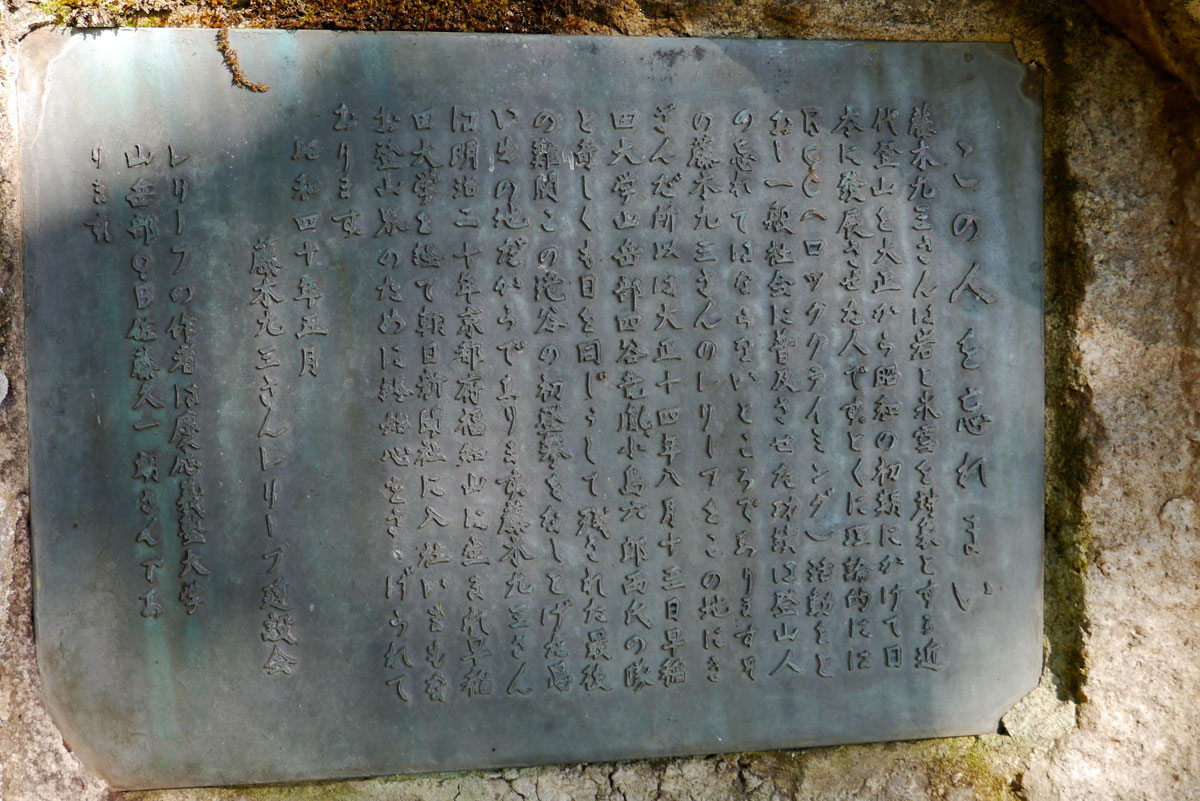 この人を忘れまい
藤木九三さんは岩と氷雪を対象とする近
代登山を大正から昭和の初頭にかけて日
本に発展させた人ですとくに理論的には
RCC（ロッククライミング）活動をと
おし一般社会に普及させた功績は登山人
の忘れてはならないところでありますそ
の藤木九三さんのレリーフをこの地にき
ざんだ所以は大正十四年八月十三日早稲
田大学山岳部四谷竜胤小島六郎両氏の隊
と奇しくも日を同じうして残された最後
の難関この滝谷の初登攀をなしとげた思
い出の地だからであります藤木九三さん
は明治二十年京都府福知山に生まれ早稲
田大学を経て朝日新聞社に入社いまもなお
登山界のために
ささげられて
おります
昭和四十年五月
藤木九三さんレリーフ建設会
レリーフの作者は慶応義塾大学
山岳部OB佐藤久一朗さんであ
ります